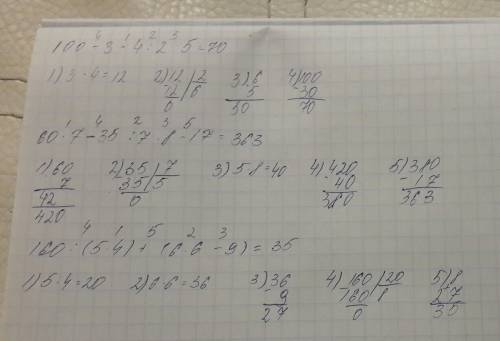 100 - 3 · 4 : 2 · 5 = 70
4 1 2 3
1) 3 · 4 = 12 2) 12 | 2 3) 6 4) 100
12 | 6 5 - 30
0 30 70
60 · 7 - 35 : 7 · 8 - 17 = 363
1 4 2 3 5
1) 60 2) 35 | 7 3) 5 · 8 = 40 4) 420 5) 380
7 35 | 5 - 40 - 17
42 0 380 363
420
160 : (5 · 4) + (6 · 6 - 9) = 35
4 1 5 2 3
1) 5 · 4 = 20 2) 6 · 6 = 36 3) 36 4) 160 | 20 5) 8
- 9 160 | 8 27
27 0 35